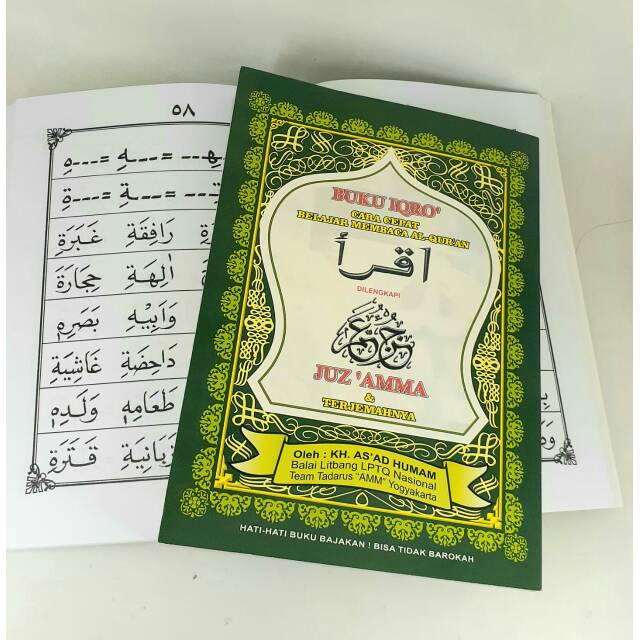 ٥٨
ـهِـ = ـــهِ = ـــهِ
ـةِـ = ـــةِ = ـــةِ
رَافِقَةِ غَبَرَةِ
اٰلِهَةِ حِجَارَةَ
وَاَبِيْهِ بَصَرِهٖ
دَاحِضَةِ غَاشِيَةِ
طَعَامِهٖ وَلَدِهٖ
زَبَانِيَةِ قَتَرَةِ
BUKU IQRO'
CARA CEPAT
BELAJAR MEMBACA AL-QUR'AN
اقرأ
DILENGKAPI
جزء عم
JUZ 'AMMA
&
TERJEMAHNYA
Oleh : KH. AS'AD HUMAM
Balai Litbang LPTQ Nasional
Team Tadarus "AMM" Yogyakarta
HATI-HATI BUKU BAJAKAN ! BISA TIDAK BAROKAH